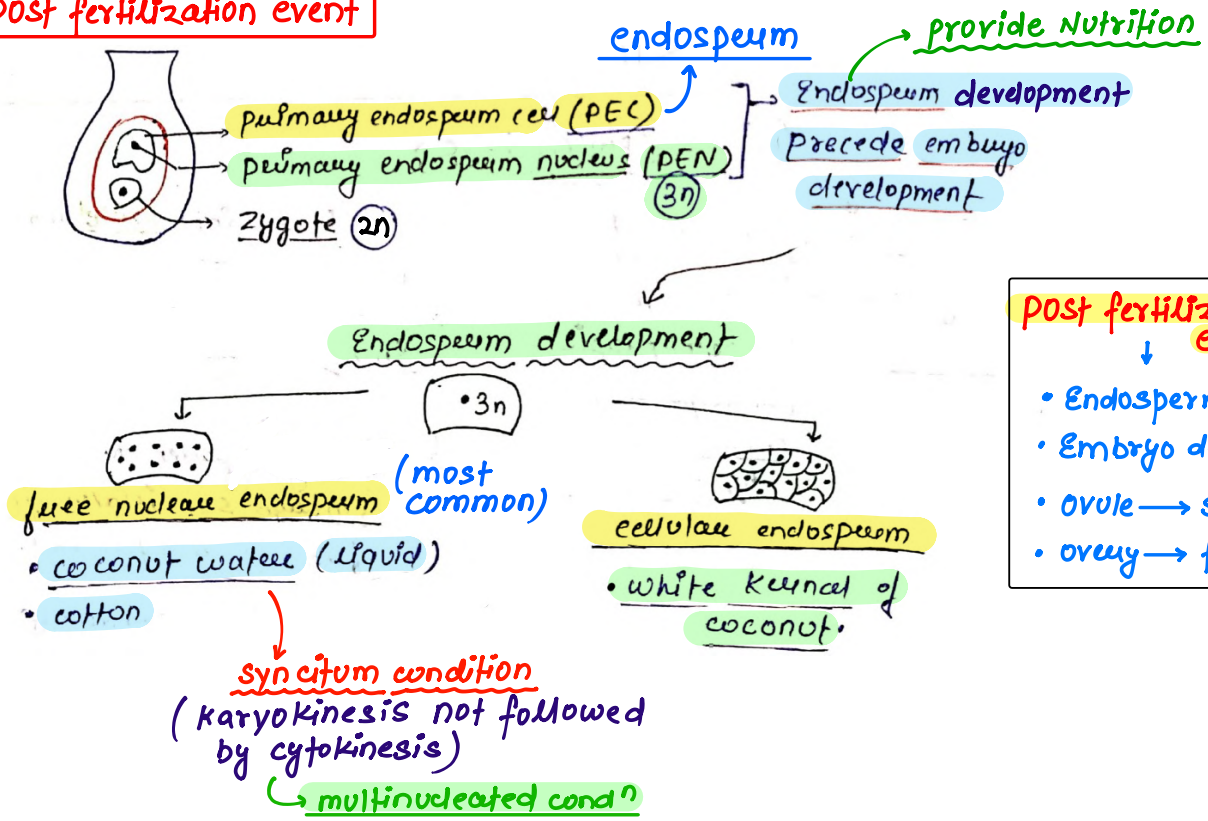 Post fertilization event
endosperm
provide Nutrition
primary endosperm cell (PEC)
primary endosperm nucleus (PEN)
3n
zygote 2n
Endosperm development
Precede embryo
development
Endosperm development
3n
free nuclear endosperm
(most
common)
• coconut water (liquid)
• cotton
cellular endosperm
• white Kernel of
coconut.
syncitum condition
(Karyokinesis not followed
by cytokinesis)
multinucleated condⁿ
Post fertiliz
e
• Endosper
• Embryo d
• Ovule → s
• Overy → f